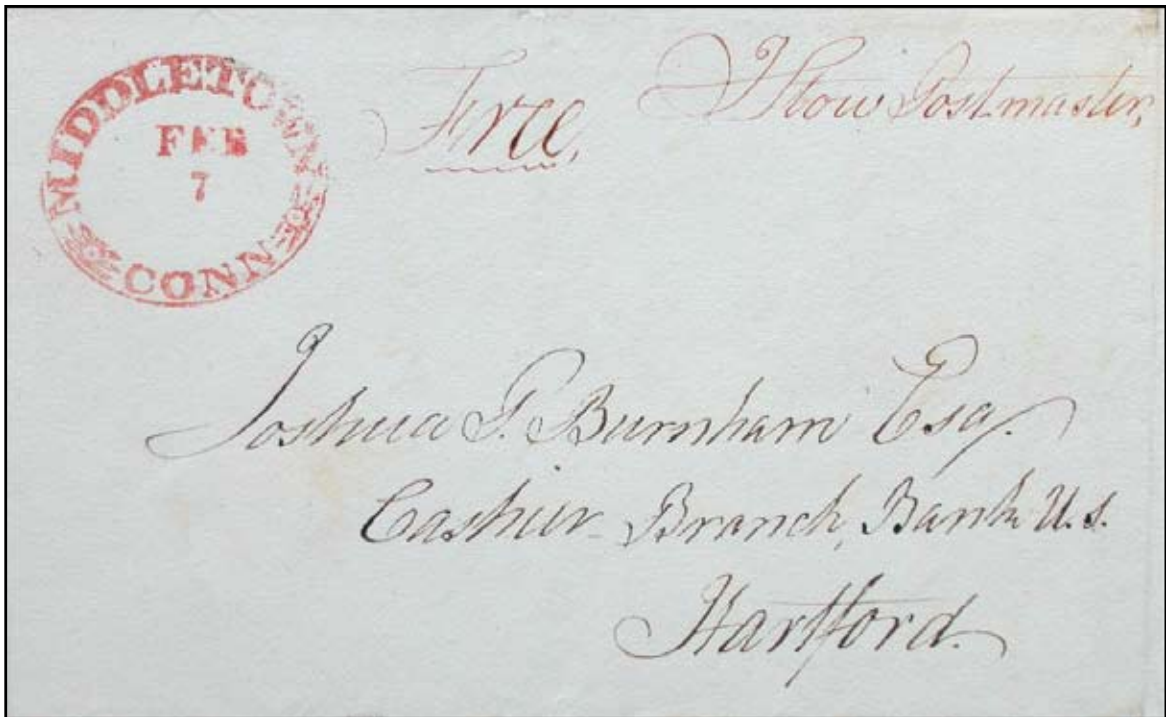 MIDDLETOWN
FEB
7
CONN
Free,
J Stow Postmaster,
Joshua P. Burnham Esq.
Cashier Branch, Bank U.S.
Hartford.